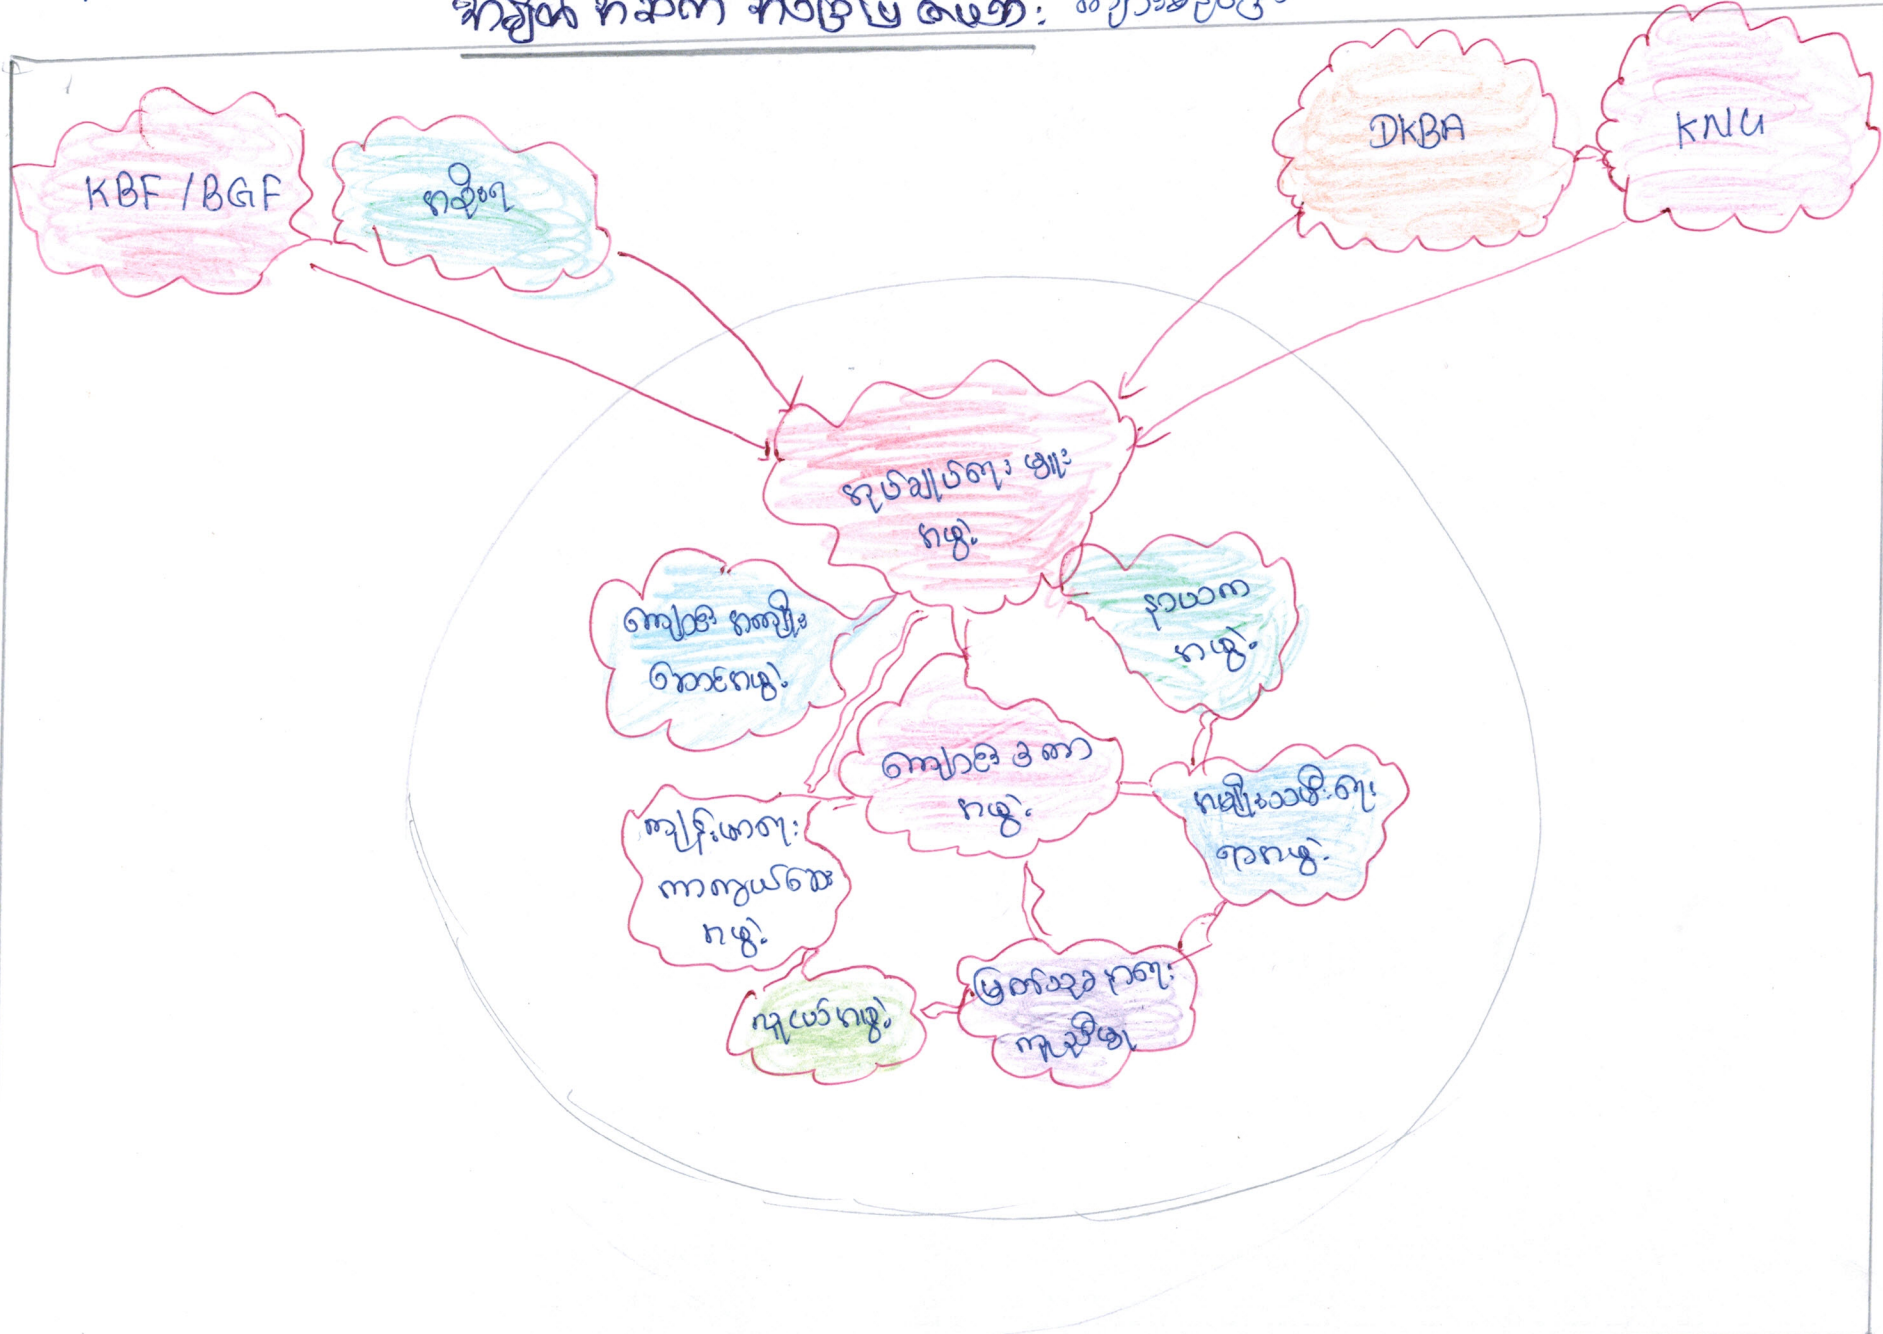 KBF / BGF
အစိုးရ
DKBA
KNU
အုပ်ချုပ်ရေး မှူး
အဖွဲ့
ကျောင်း အကျိုး
ဆောင်အဖွဲ့
နာယက
အဖွဲ့
ကျောင်း ဒကာ
အဖွဲ့
အမျိုးသမီးရေး
ရာအဖွဲ့
ကျန်းမာရေး
ကာကွယ်ဆေး
အဖွဲ့
လူငယ်အဖွဲ့
မြတ်သုခ နာရေး
ကူညီမှု